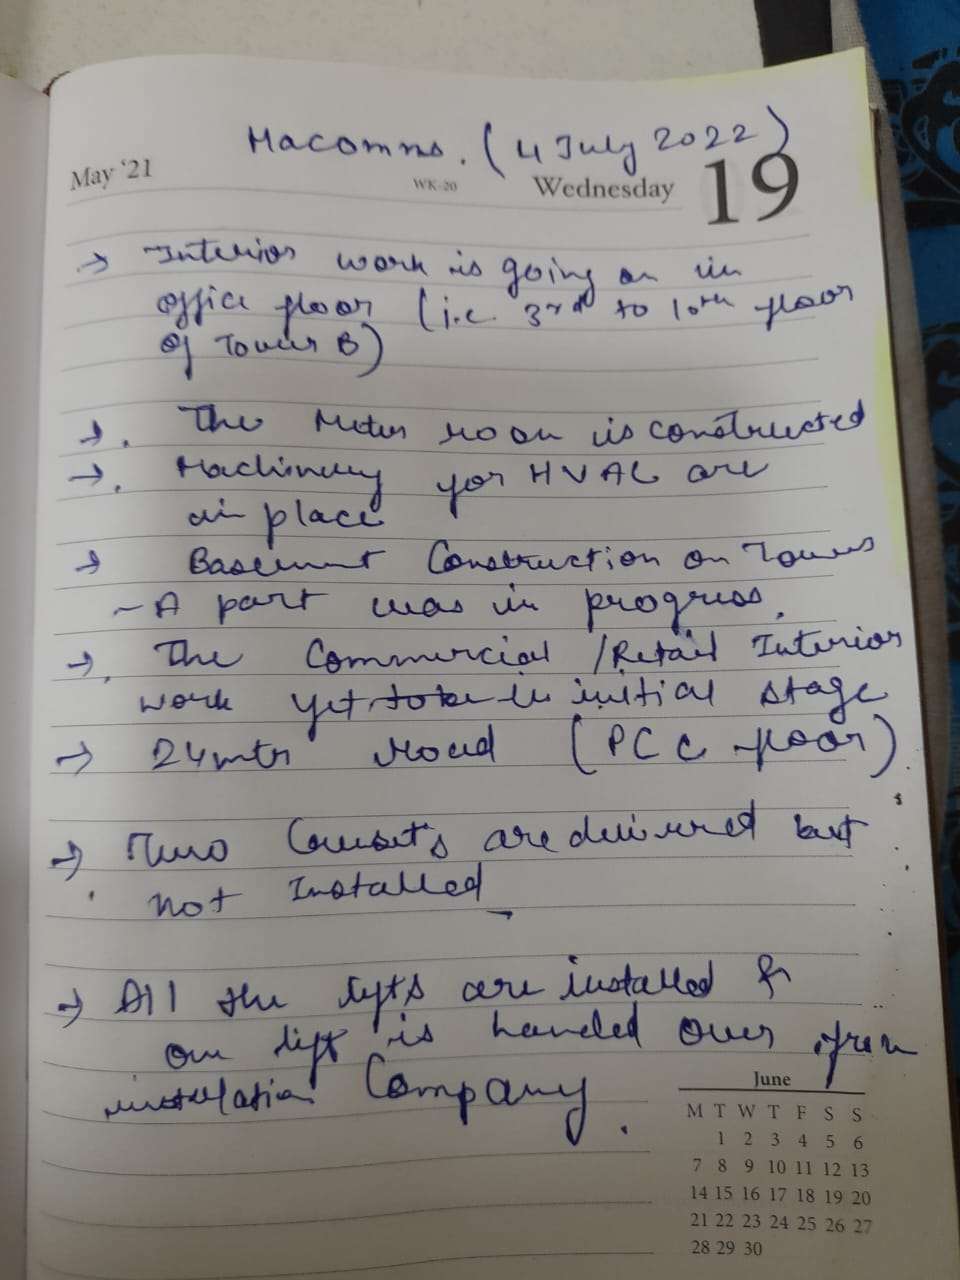 Macomns. (4 July 2022)
May '21 WK-20 Wednesday 19
→ Interior work is going on in
office floor (i.e. 3rd to 10th floor
of Tower B)
→. The Meter room is constructed
→. Machinery for HVAC are
in place
→ Basement Construction on Tower
-A part was in progress.
→. The Commercial /Retail Interior
work yet to be in initial stage
→ 24mtr road (PCC floor)
→ Two are delivered but
not Installed
→ All the lyfts are installed &
one lift is handed over from
installation Company.
June
M T W T F S S
1 2 3 4 5 6
7 8 9 10 11 12 13
14 15 16 17 18 19 20
21 22 23 24 25 26 27
28 29 30